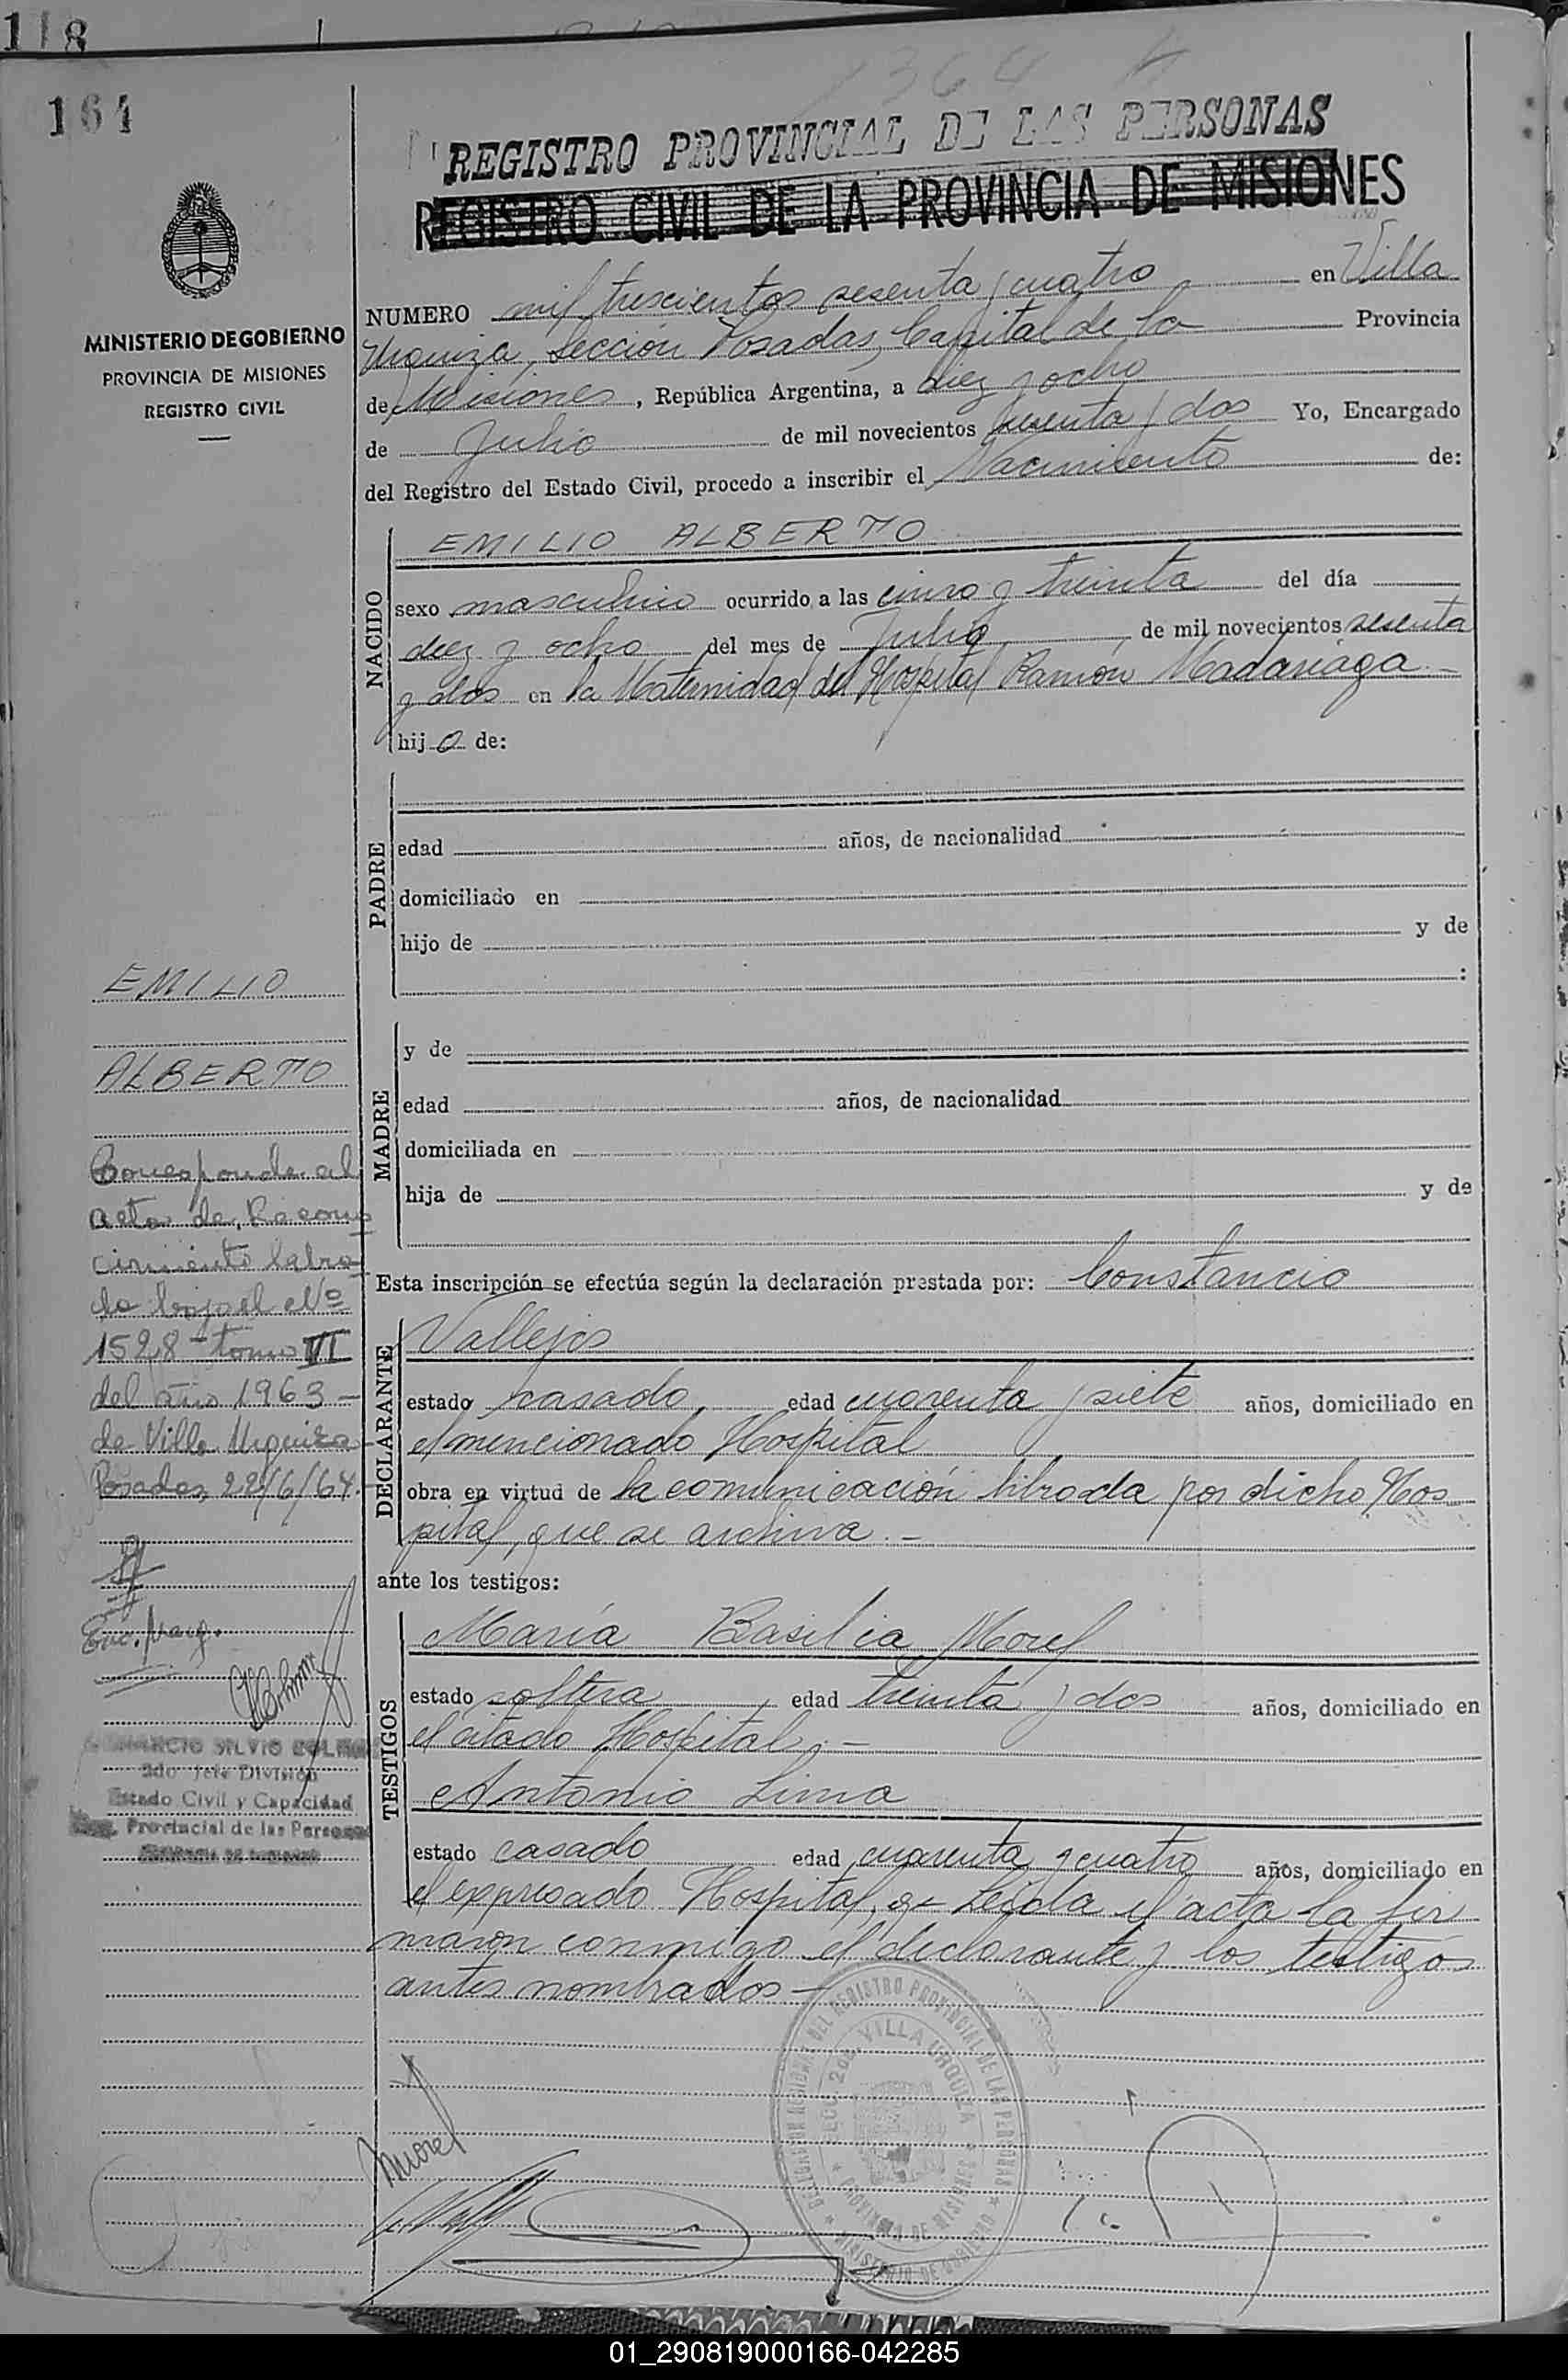 118
164
1364
REGISTRO PROVINCIAL DE LAS PERSONAS
REGISTRO CIVIL DE LA PROVINCIA DE MISIONES
MINISTERIO DE GOBIERNO
PROVINCIA DE MISIONES
REGISTRO CIVIL
NUMERO mil trescientos sesenta y cuatro en Villa
Urquiza, Sección Posadas, Capital de la Provincia
de Misiones, República Argentina, a diez y ocho
de Julio de mil novecientos sesenta y dos Yo, Encargado
del Registro del Estado Civil, procedo a inscribir el Nacimiento de:
NACIDO
EMILIO ALBERTO
sexo masculino ocurrido a las cinco y treinta del día
diez y ocho del mes de Julio de mil novecientos sesenta
y dos en la Maternidad del Hospital Ramón Madariaga.-
hijo de:
PADRE
edad años, de nacionalidad
domiciliado en
hijo de y de
:
MADRE
y de
edad años, de nacionalidad
domiciliada en
hija de y de
Esta inscripción se efectúa según la declaración prestada por: Constancio
DECLARANTE
Vallejos
estado casado, edad cuarenta y siete años, domiciliado en
el mencionado Hospital
obra en virtud de la comunicación librada por dicho Hos
pital, que se archiva.-
ante los testigos:
TESTIGOS
María Basilia Morel
estado soltera, edad treinta y dos años, domiciliado en
el citado Hospital, y-
Antonio Lima
estado casado edad cuarenta y cuatro años, domiciliado en
el expresado Hospital, y- Leída el acta la fir
maron conmigo el declarante y los testigos
antes nombrados-
EMILIO
ALBERTO
Corresponde al
acta de Recono
cimiento labra
da bajo el Nº
1528 - tomo VI
del año 1963-
de Villa Urquiza-
Posadas, 22/6/64.
Enc. Marg.
SILVIO
2do Jefe División
Estado Civil y Capacidad
Provincial de las Personas
Morel
DELEGACION REGIONAL DEL REGISTRO PROVINCIAL DE LAS PERSONAS
MINISTERIO DE GOBIERNO
SECC. 2da. VILLA URQUIZA
PROVINCIA DE MISIONES
01_290819000166-042285